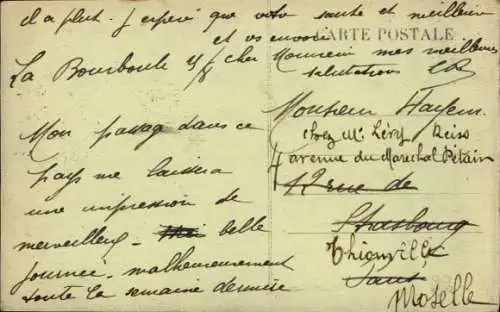 il a plut. J'espere que votre sante est meilleure
et vous envoie
CARTE POSTALE
cher Monsieur mes meilleures
salutations
La Bourboule
Mon passage dans ce
pays me laissera
une impression de
merveilleux belle
journee - malheureusement
toute la semaine derniere
Monsieur
chez Mr Lévy Reiss
4 avenue du Marechal Pétain
12 rue de
Strasbourg
Thionville
Moselle